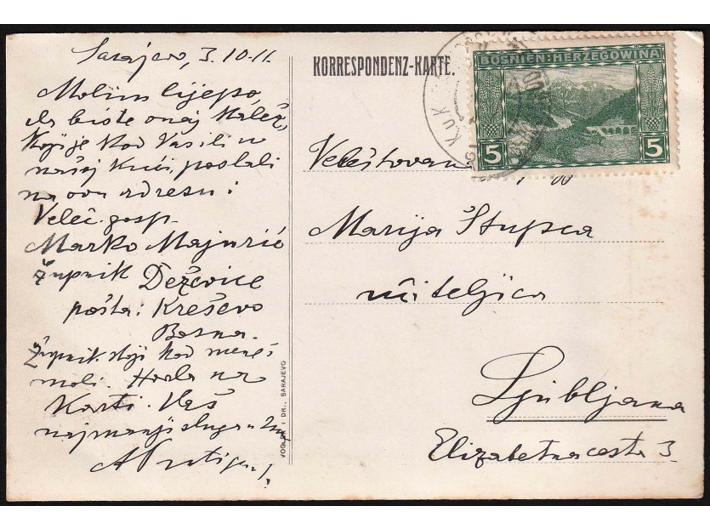 Sarajevo, 3. 10. 11.
Molim lijepo,
da biste onaj
koji je kod Vasili u
našoj kući, poslali
na ovu adresu:
Veleč. gosp.
Marko Majurić
Župnik Deževice
pošta: Kreševo
Bosna.
Župnik stoji kod mene i
moli. Hvala na
Karti. Vaš
najmanji sluga
KORRESPONDENZ-KARTE.
BOSNIEN-HERZEGOWINA
5 5
KUK
Marija Štupca
učiteljica
Ljubljana
Elizabetna cesta 3.
VOGLER I DR., SARAJEVO